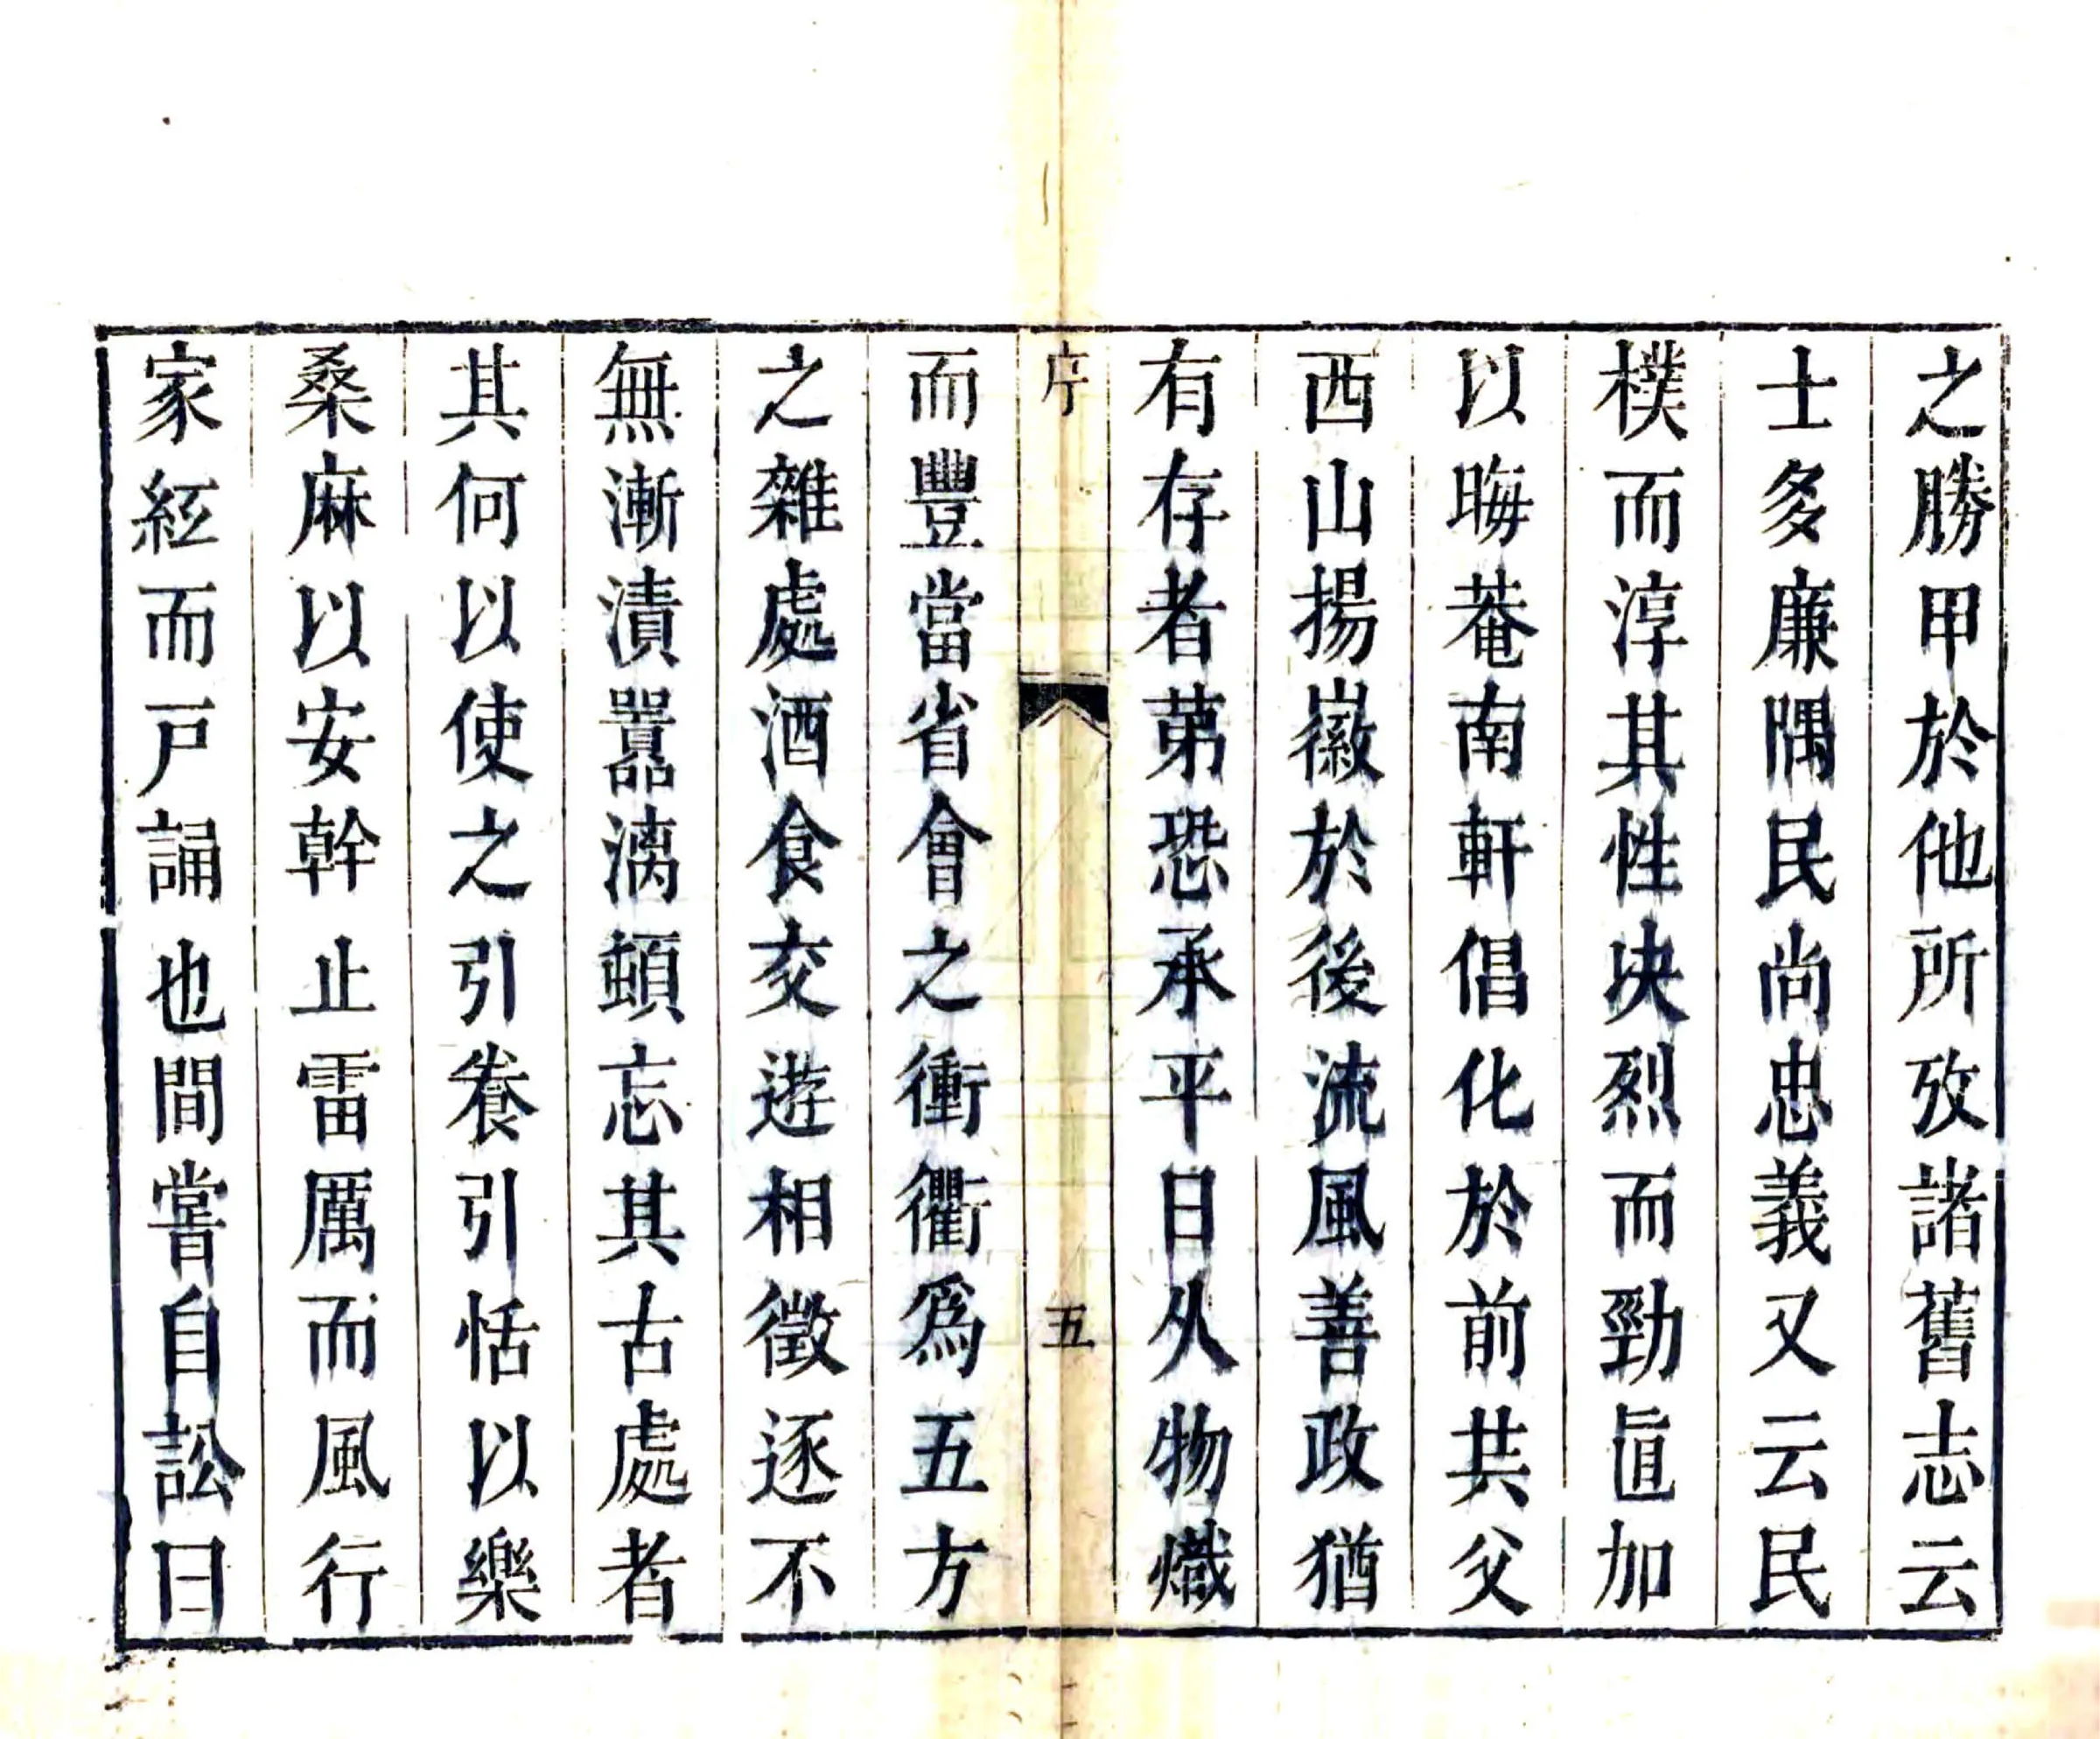 之勝甲於他所攷諸舊志云
士多廉隅民尚忠義又云民
樸而淳其性决烈而勁直加
以晦菴南軒倡化於前共父
西山揚徽於後流風善政猶
有存者苐恐承平日久物熾
序
五
而豐當省會之衝衢爲五方
之雜處酒食交遊相徵逐不
無漸漬囂漓頓忘其古處者
其何以使之引養引恬以樂
桑麻以安幹止雷厲而風行
家絃而戸誦也間嘗自訟曰